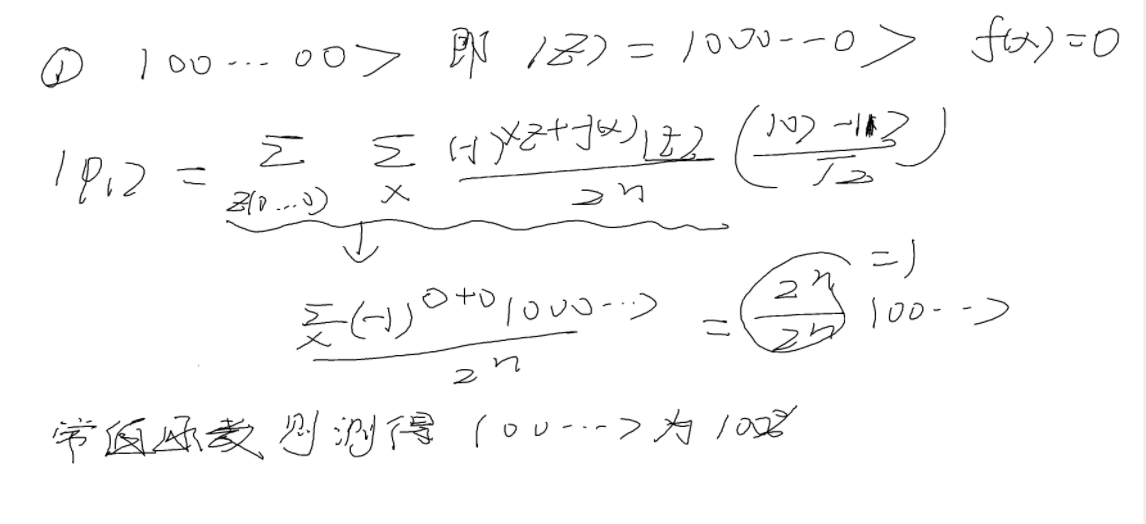 ① |00...00> 即 |z> = |000--0> f(x)=0
|φ₁> = Σ_{z(0...0)} Σ_x (-1)^{xz+f(x)}|z> / 2^n (|0>-|1> / √2)
Σ_x (-1)^{0+0}|000--> / 2^n = 2^n / 2^n |00--> =1
常值函数则测得 |00---> 为100%